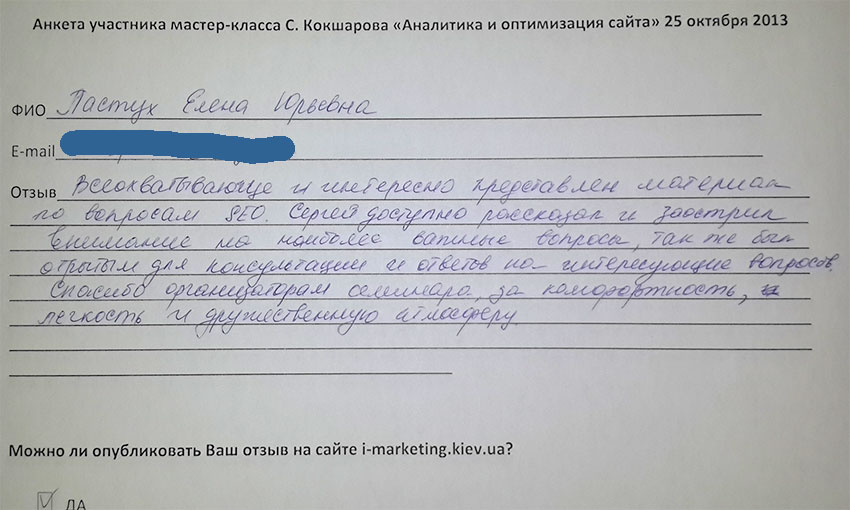 Анкета участника мастер-класса С. Кокшарова «Аналитика и оптимизация сайта» 25 октября 2013
ФИО Пастух Елена Юрьевна
E-mail
Отзыв Всеохватывающе и интересно представлен материал
по вопросам SEO. Сергей доступно рассказал и заострил
внимание на наиболее важные вопросы, так же был
отрытым для консультации и ответов на интересующие вопросов.
Спасибо организаторам семинара, за комфортность,
легкость и дружественную атмосферу.
Можно ли опубликовать Ваш отзыв на сайте i-marketing.kiev.ua?
ДА